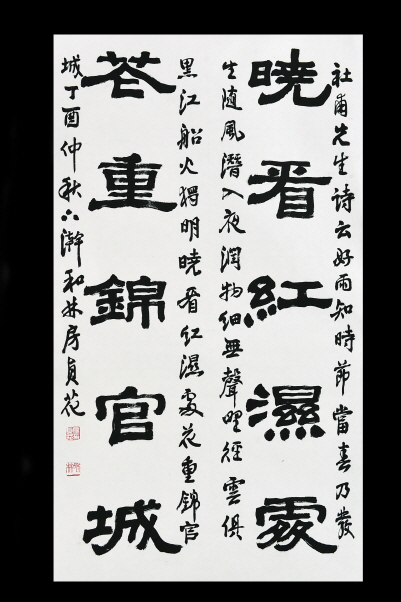 杜甫先生诗云好雨知時節當春乃發
曉看紅濕處
生隨風潛入夜潤物細無聲野徑雲俱
黑江船火獨明曉看紅濕處花重錦官
花重錦官城
城丁酉仲秋於瀚和林房貞花